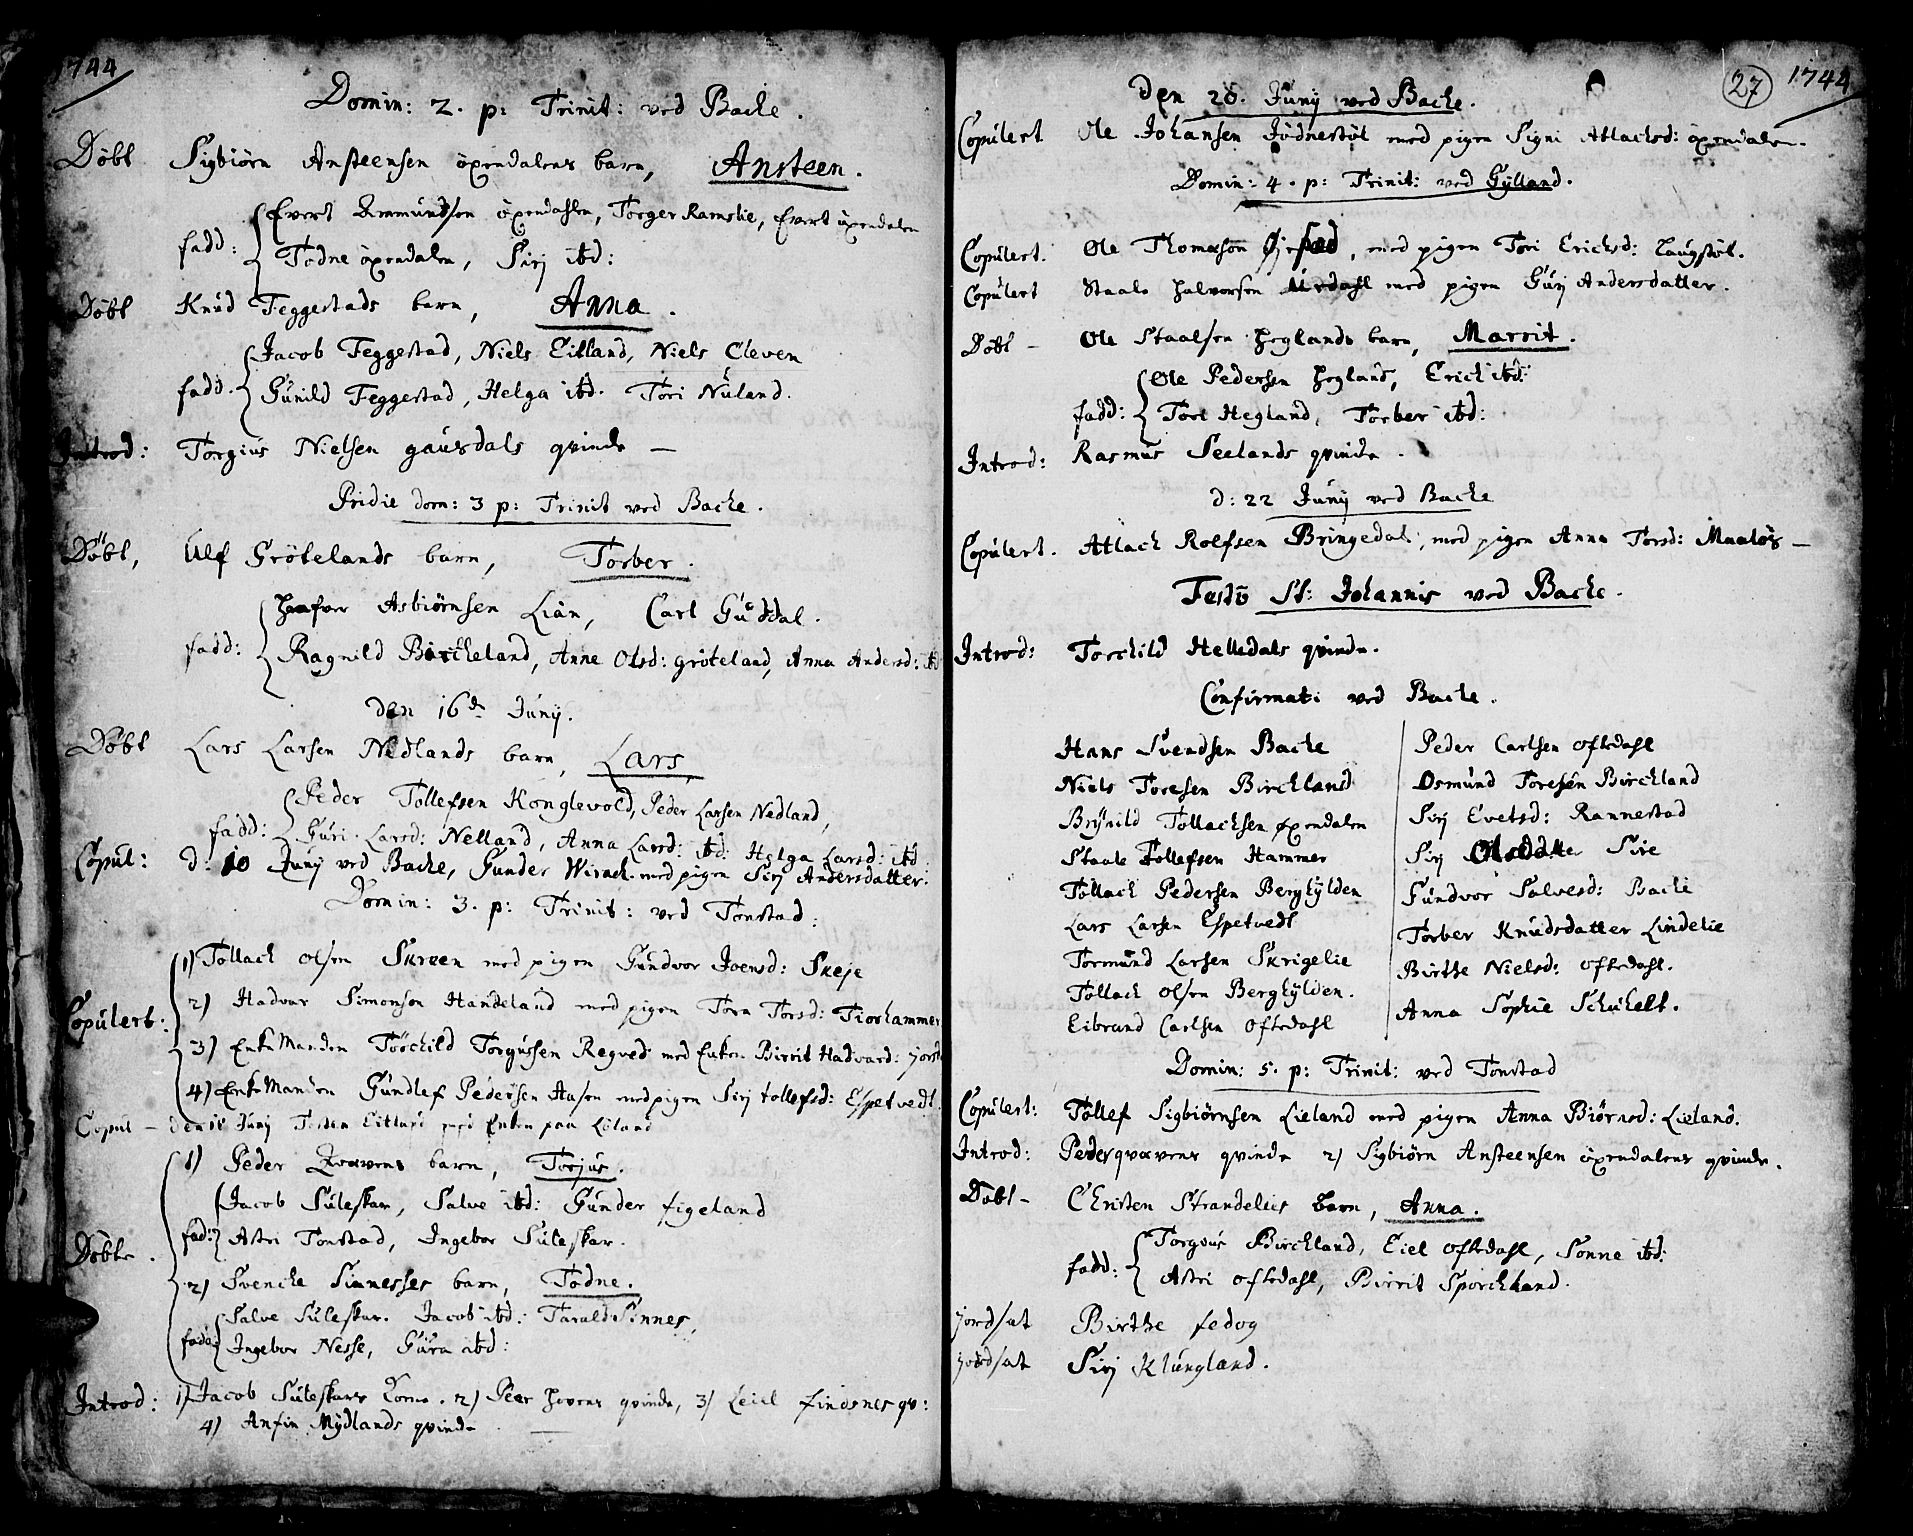 1744
Domin: 2. p: Trinit: ved Bache.
Döbt Sigbiörn Ansteensen öxendalens barn, Ansteen.
fadd: Evert Ammundsen öxendahlen, Torger Ramslie, Evert öxendalen
Todne öxendalen, Sirj ibd:
Döbt Knud Feggestads barn, Anna.
Jacob Feggestad, Niels Eitland, Niels Cleven
fadd. Gunild Feggestad, Helga ibd. Tori Nuland.
Introd: Torgius Nielsen gausdals qvinde —
Pridie dom: 3 p: Trinit ved Bache.
Döbt, Ulf Grötelands barn, Torber.
Asbiörnsen Liân, Carl Guddal.
fadd: Ragnild Birckeland, Anne Olsd: gröteland, Anna Andersd: ibd
den 16de Junij.
Döbt Lars Larsen Nedlands barn, Lars,
Peder Tollefsen Konglevold, Peder Larsen Nedland,
fadd: Guri Larsd: Nelland, Anna Larsd: ibd: Helga Larsd: ibd.
Copul: d: 10 Junij ved Bache, Gunder Wirach med pigen Sirj Andersdatter.
Domin: 3. p: Trinit: ved Tonstad:
1) Tollach olsen Skreen med pigen Gundvor Joensd: Skeje
Copulert: 2) Hadvar Simonsen Handeland med pigen Torn Torsd: Tiorhammer
3) EnkeManden Torchild Torgussen Regved med Enken Birrit Hadvard:
4) EnkeManden Gundlef Pedersen Hasen med pigen Sirj tollefsd: Espetvedt.
Copul — den 18 Junij Torden Eitland med Enken paa Löland
1) Peder Qvævens barn, Torjus.
Jacob Suleskar, Salve ibd: Gunder figeland
fad: Astri Tonstad, Ingebor Suleskar.
Döbte. 2) Svencke Sinnesses barn, Todne.
Salve Suleskar. Jacob ibd: Tarald Sinnes,
fadd: Ingebor Nesse, Gura ibd:
Introd: 1) Jacob Suleskars Kone. 2) Peer hovens qvinde, 3) Leiel findsnes qv:
4) Anfin Mydlands qvinde
27 1744
den 20. Junij ved Bache.
Copulert Ole Johansen Jödnestöl med pigen Signi Atlachsd: öxendalen.
Domin: 4. p: Trinit: ved Gylland.
Copulert. Ole Thomæson, med pigen Tori Ericksd: Laugstöl.
Copulert Staale Halvorsen Urdahl med pigen Gurj Andersdatter.
Döbt — Ole Staalsen Heglands barn, Marrit.
Ole Pedersen Hegland, Erich ibd:
fadd: Tori Hegland, Torber ibd:
Introd: Rasmus Seelands qvinde.
d: 22 Junij ved Bache
Copulert. Atlach Rolfsen Bringedal, med pigen Anna Torsd: Maaløs —
Festo St: Johannis ved Bache.
Introd: Torchild Helledals qvinde.
Confirmati ved Bache.
Hans Svendsen Bache
Niels Toresen Birckland
Brynild Tollachsen öxendalen
Staale Tollefsen Hammer
Tollach Pedersen Berghylden
Lars Larsen Espetvedt
Tormund Larsen Skrigelie
Tollach olsen Berghylden.
Eibrand Carlsen Oftedahl
Peder Carlsen oftedahl
Osmund Toresen Birckland
Sirj Evetsd: Rannestad
Sirj Olsdatter Sire
Gundvor Salvesd: Bache
Torber Knudsdatter Lindelie
Birthe Nielsd: oftedahl.
Anna Sophie Schuhelt.
Domin: 5. p: Trinit: ved Tonstad
Copulert: Tollef Sigbiörnsen Lieland med pigen Anna Biörnsd: Lieland.
Introd: Peder qvævens qvinde 2) Sigbiörn Ansteensen öxendalens qvinde.
Döbt — Christen Strandelies barn, Anna.
Torgius Birckland, Eiel oftedahl, Sonne ibd:
fadd: Astri oftedahl, Birrit Sporckland.
jordsat Birthe fedog
jordsat Sirj Klungland.